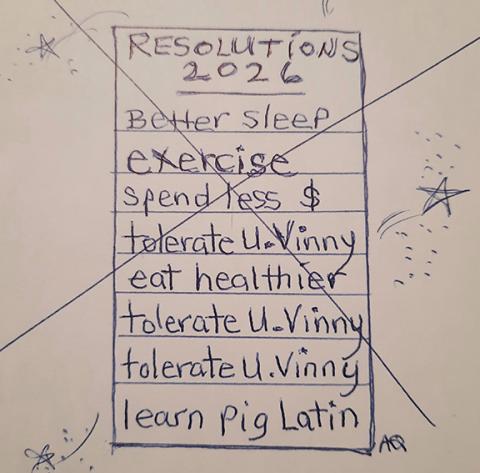 RESOLUTIONS
2026
Better sleep
exercise
spend less $
tolerate U.Vinny
eat healthier
tolerate U.Vinny
tolerate U.Vinny
learn pig Latin
AQ